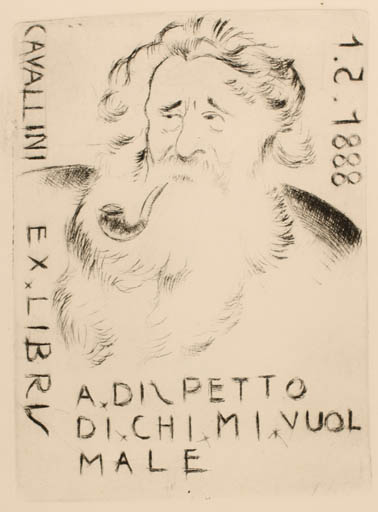 CAVALLINI
EX.LIBRIS
1.2.1888
A.DISPETTO
DI.CHI.MI.VUOL
MALE